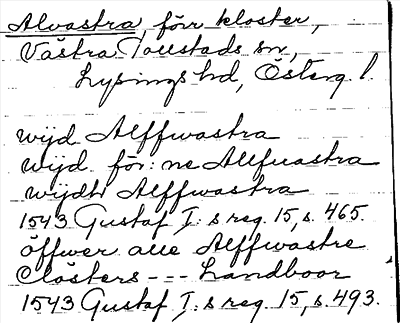 Alvastra, förr kloster,
Västra Tollstads sn,
Lysings hd, Österg. l.
wijd Alffwastra
wijd för:ne Allfuastra
wijdh Alffwastra
1543 Gustaf I:s reg. 15, s. 465.
öffwer alle Alffwastre
Closters --- Landboor
1543 Gustaf I:s reg. 15, s. 493.